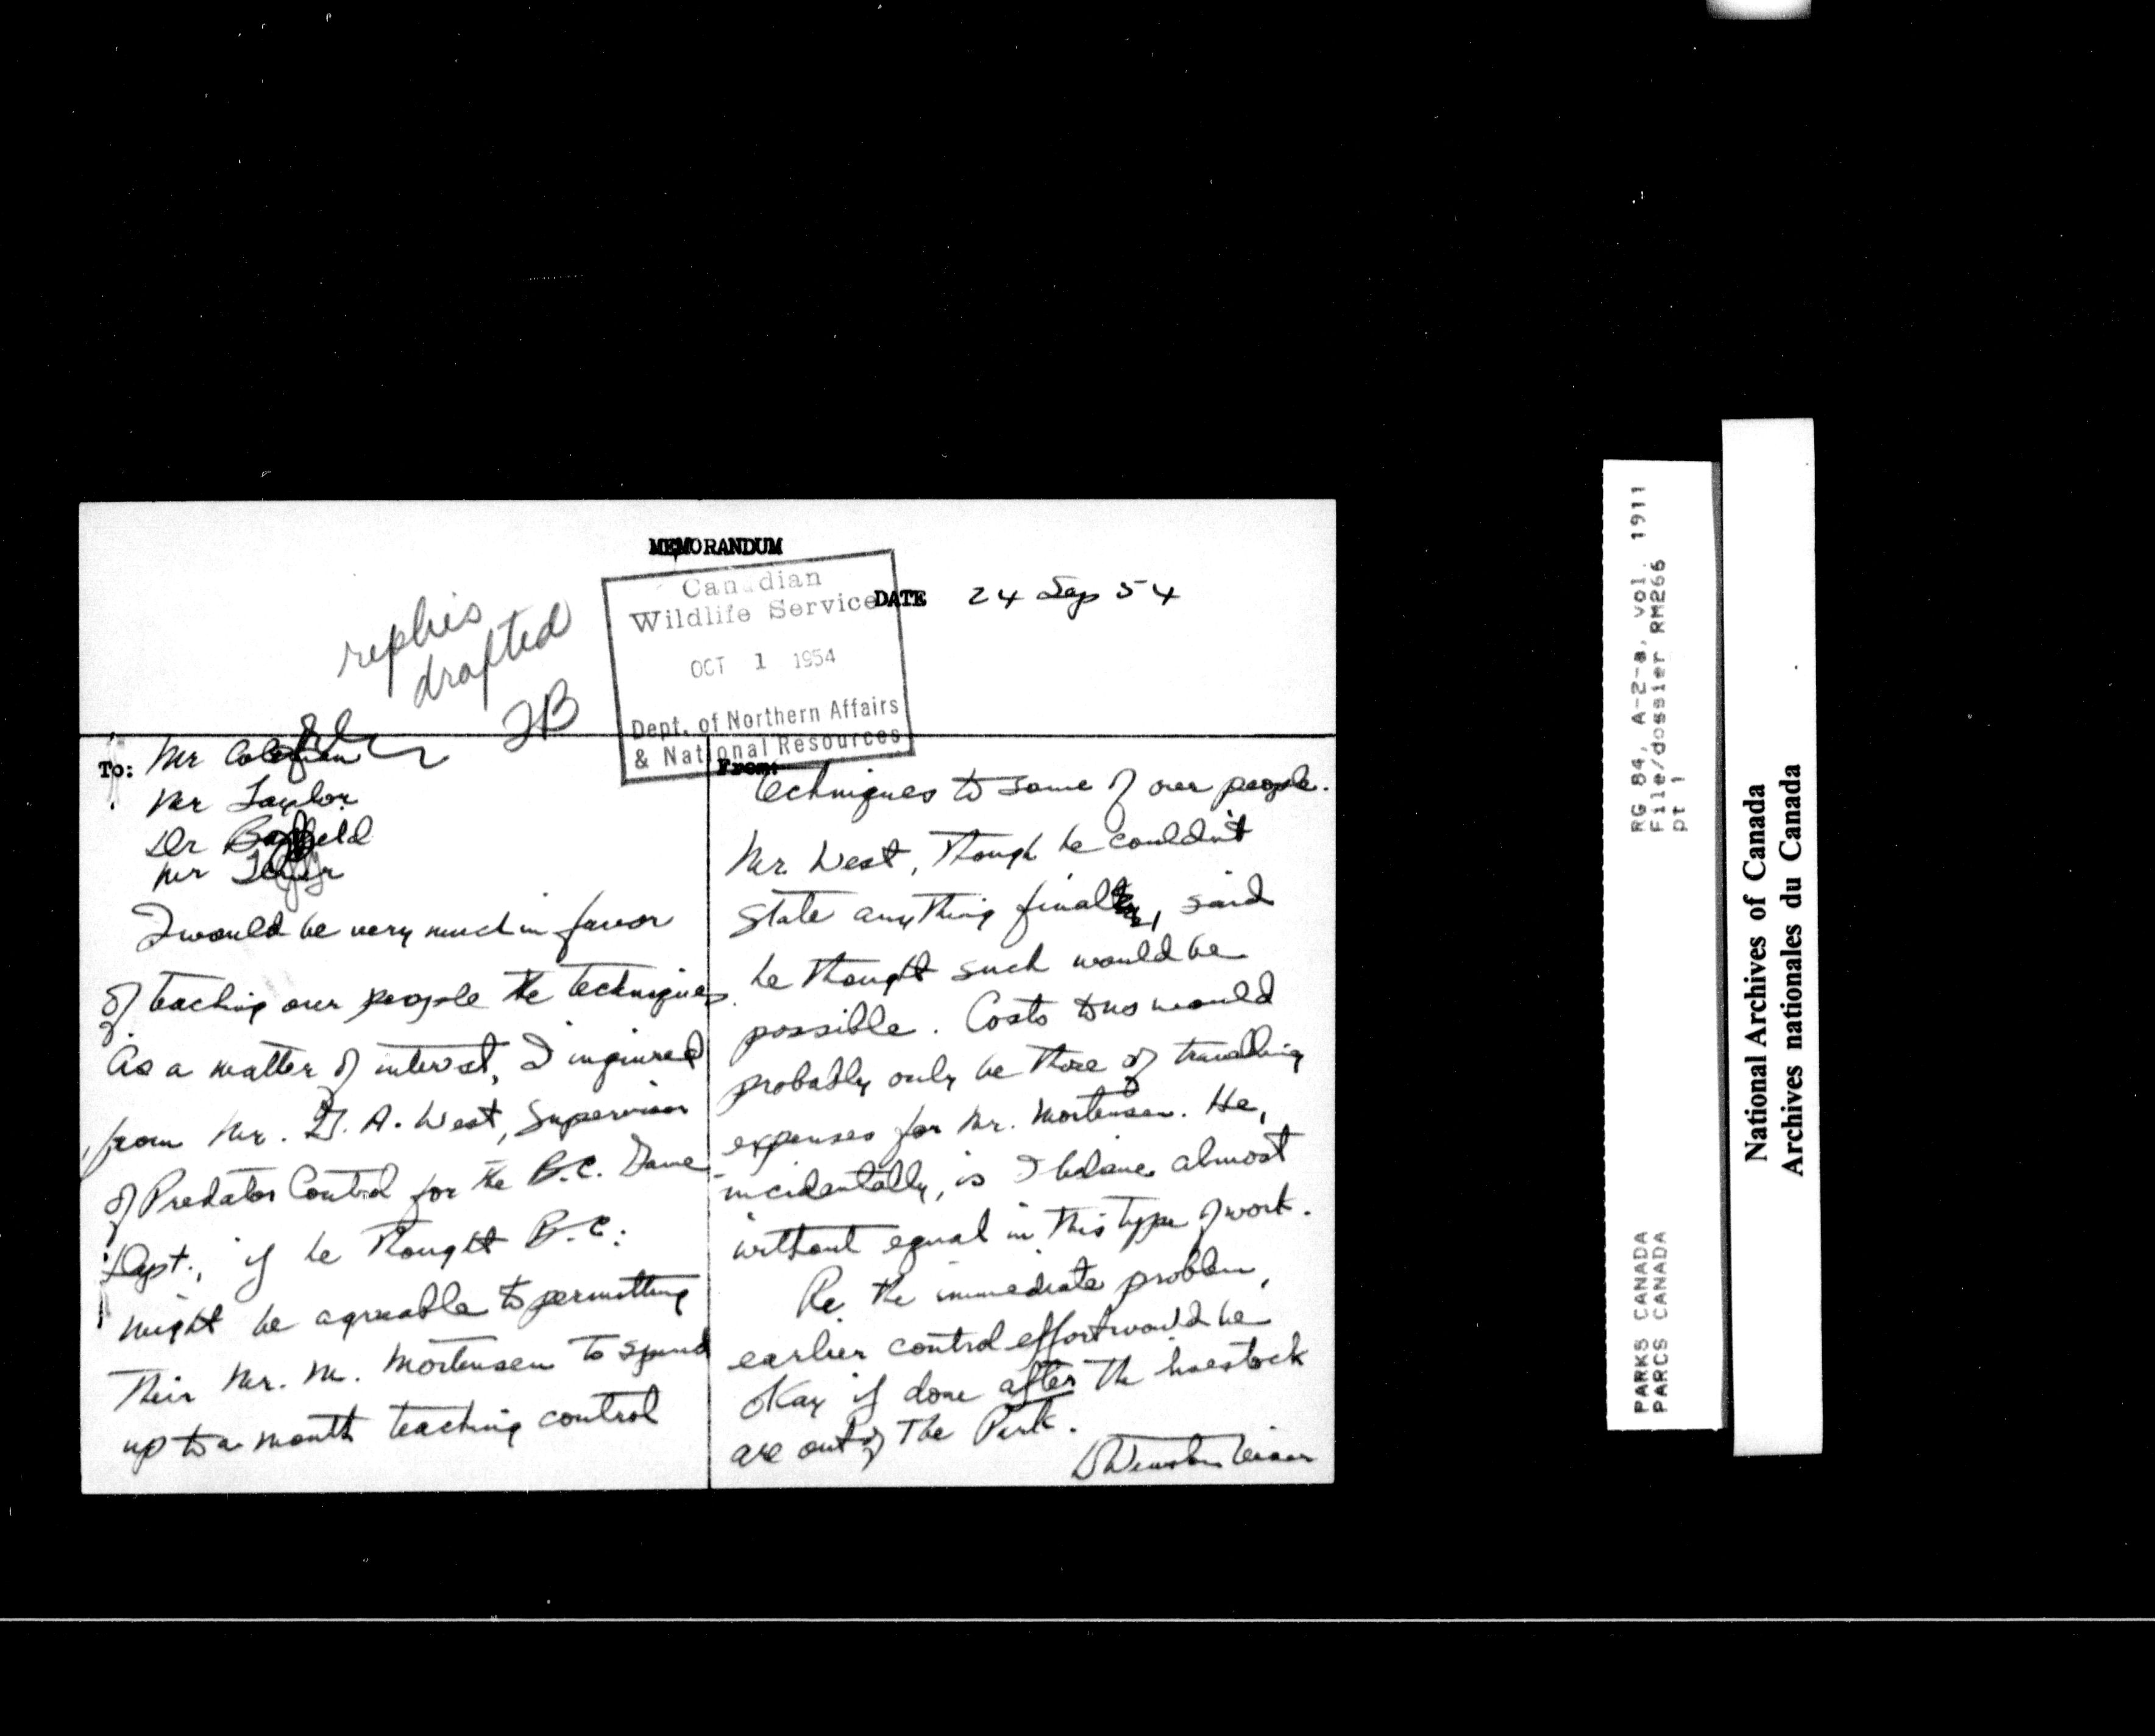 MEMORANDUM
Canadian
Wildlife Service
OCT 1 1954
Dept. of Northern Affairs
& National Resources
DATE 24 Sep 54
replies
drafted
To: Mr Coleman
Mr Taylor
Dr
Mr
I would be very much in favor
of teaching our people the techniques.
As a matter of interest, I inquired
from Mr. G. A. West, Supervisor
of Predator Control for the B.C. Game
Dept., if he thought B.C.
might be agreeable to permitting
their Mr. M. Mortensen to spend
up to a month teaching control
From:
techniques to some of our people.
Mr. West, though he couldn't
state anything final, said
he thought such would be
possible. Costs to us would
probably only be those of travelling
expenses for Mr. Mortensen. He,
incidentally, is I believe almost
without equal in this type of work.
Re. the immediate problem,
earlier control effort would be
okay if done after the livestock
are out of the Park.
RG 84, A-2-a, vol. 1911
File/dossier RM266
pt 1
PARKS CANADA
PARCS CANADA
National Archives of Canada
Archives nationales du Canada